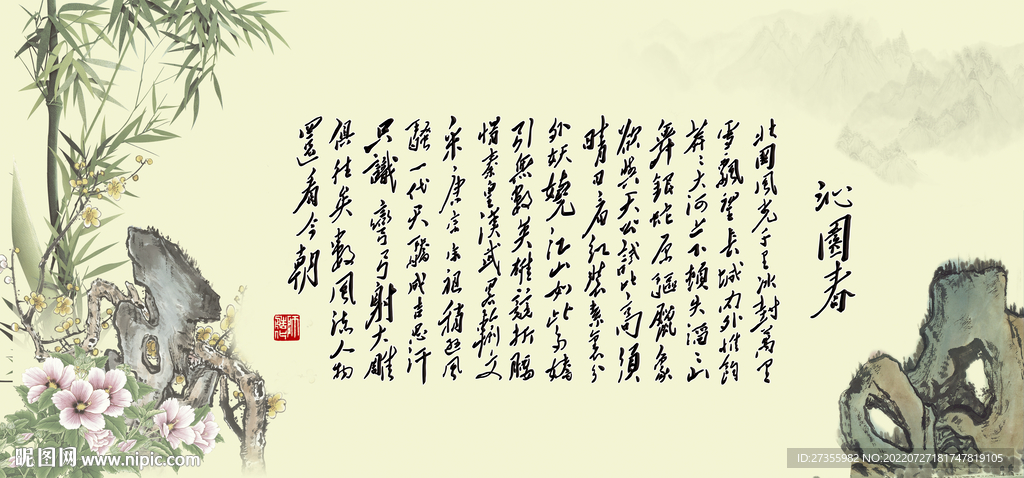 沁園春
北國風光千里冰封萬里
雪飄望長城内外惟餘
莽〻大河上下頓失滔〻山
舞銀蛇原驅臘象
欲與天公試比高須
晴日看紅裝素裹分
外妖嬈江山如此多嬌
引無數英雄競折腰
惜秦皇漢武略輸文
采唐宗宋祖稍遜風
騷一代天驕成吉思汗
只識彎弓射大雕
俱往矣數風流人物
還看今朝
昵图网 www.nipic.com
ID:27355982 NO:20220727181747819105